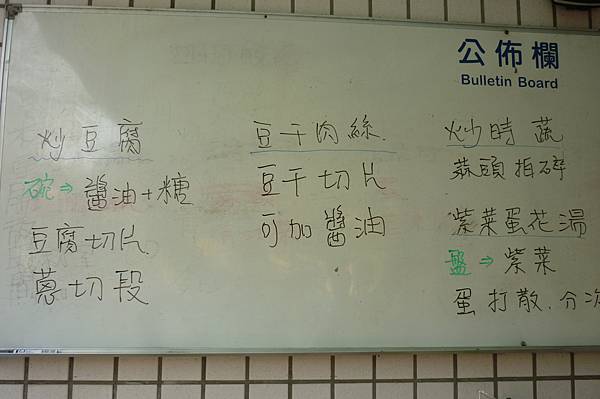 公佈欄
Bulletin Board
炒豆腐
碗⇒醬油+糖
豆腐切片
蔥切段
豆干肉絲
豆干切片
可加醬油
炒時蔬
蒜頭拍碎
紫菜蛋花湯
盤⇒紫菜
蛋打散.分次